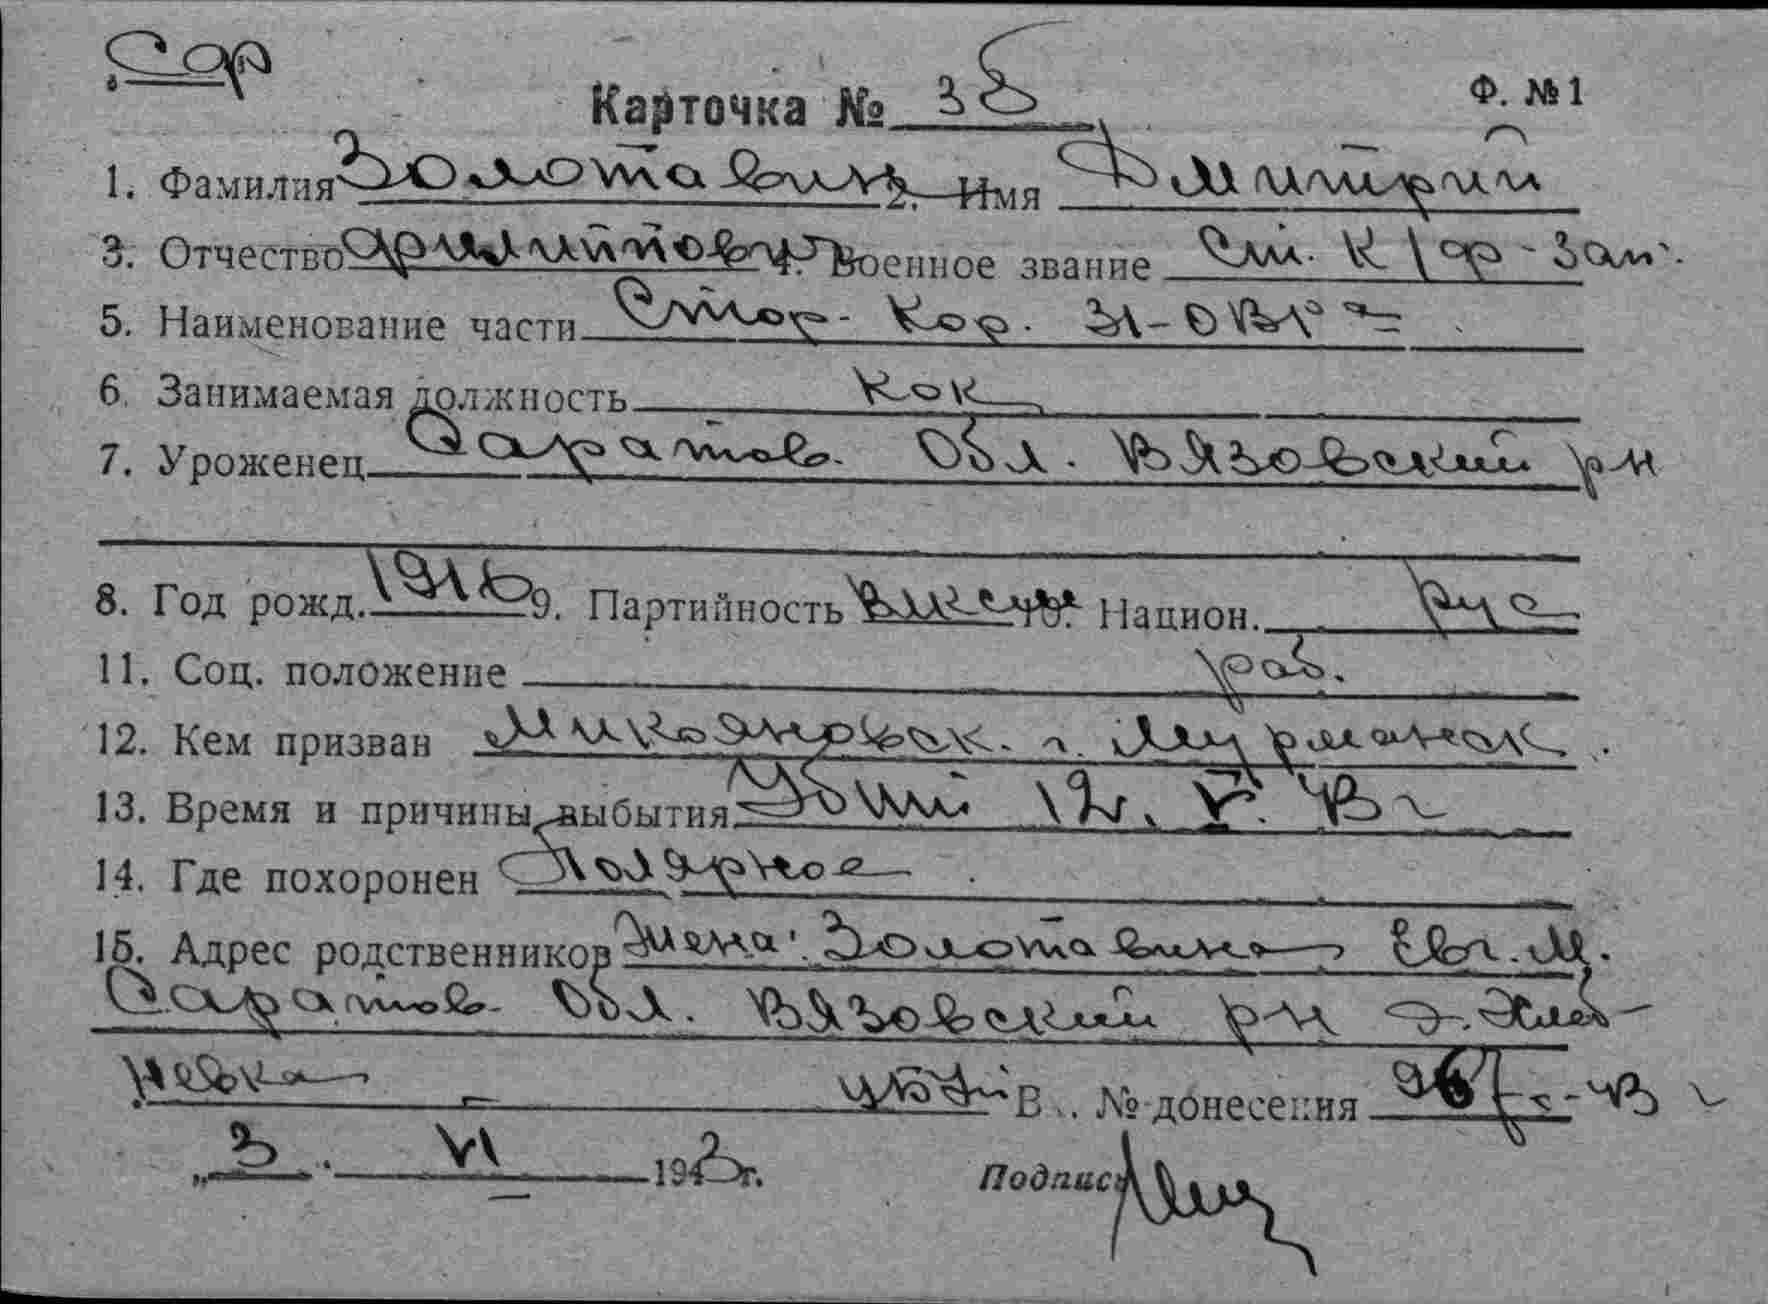 Сар
Карточка № 36 Ф. №1
1. Фамилия Золотавин 2. Имя Дмитрий
3. Отчество 4. Военное звание Ст. К/ф-зап.
5. Наименование части Стор. Кор. ОВРа
6. Занимаемая должность Кок
7. Уроженец Саратов. Обл. Вязовский р-н
8. Год рожд. 1916 9. Партийность 10. Национ. рус
11. Соц. положение раб.
12. Кем призван Микояновск. г. Мурманск.
13. Время и причины выбытия Убит 12. V. 43 г
14. Где похоронен Полярное
15. Адрес родственников Жена: Золотавина Евг. М.
Саратов. Обл. Вязовский р-н д.
В . . № донесения -43 г
„3" VI 1943г. Подпись